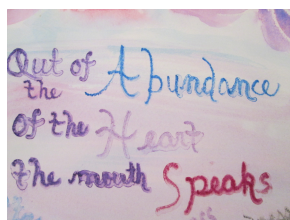 Out of Abundance
the
of the Heart
the mouth Speaks